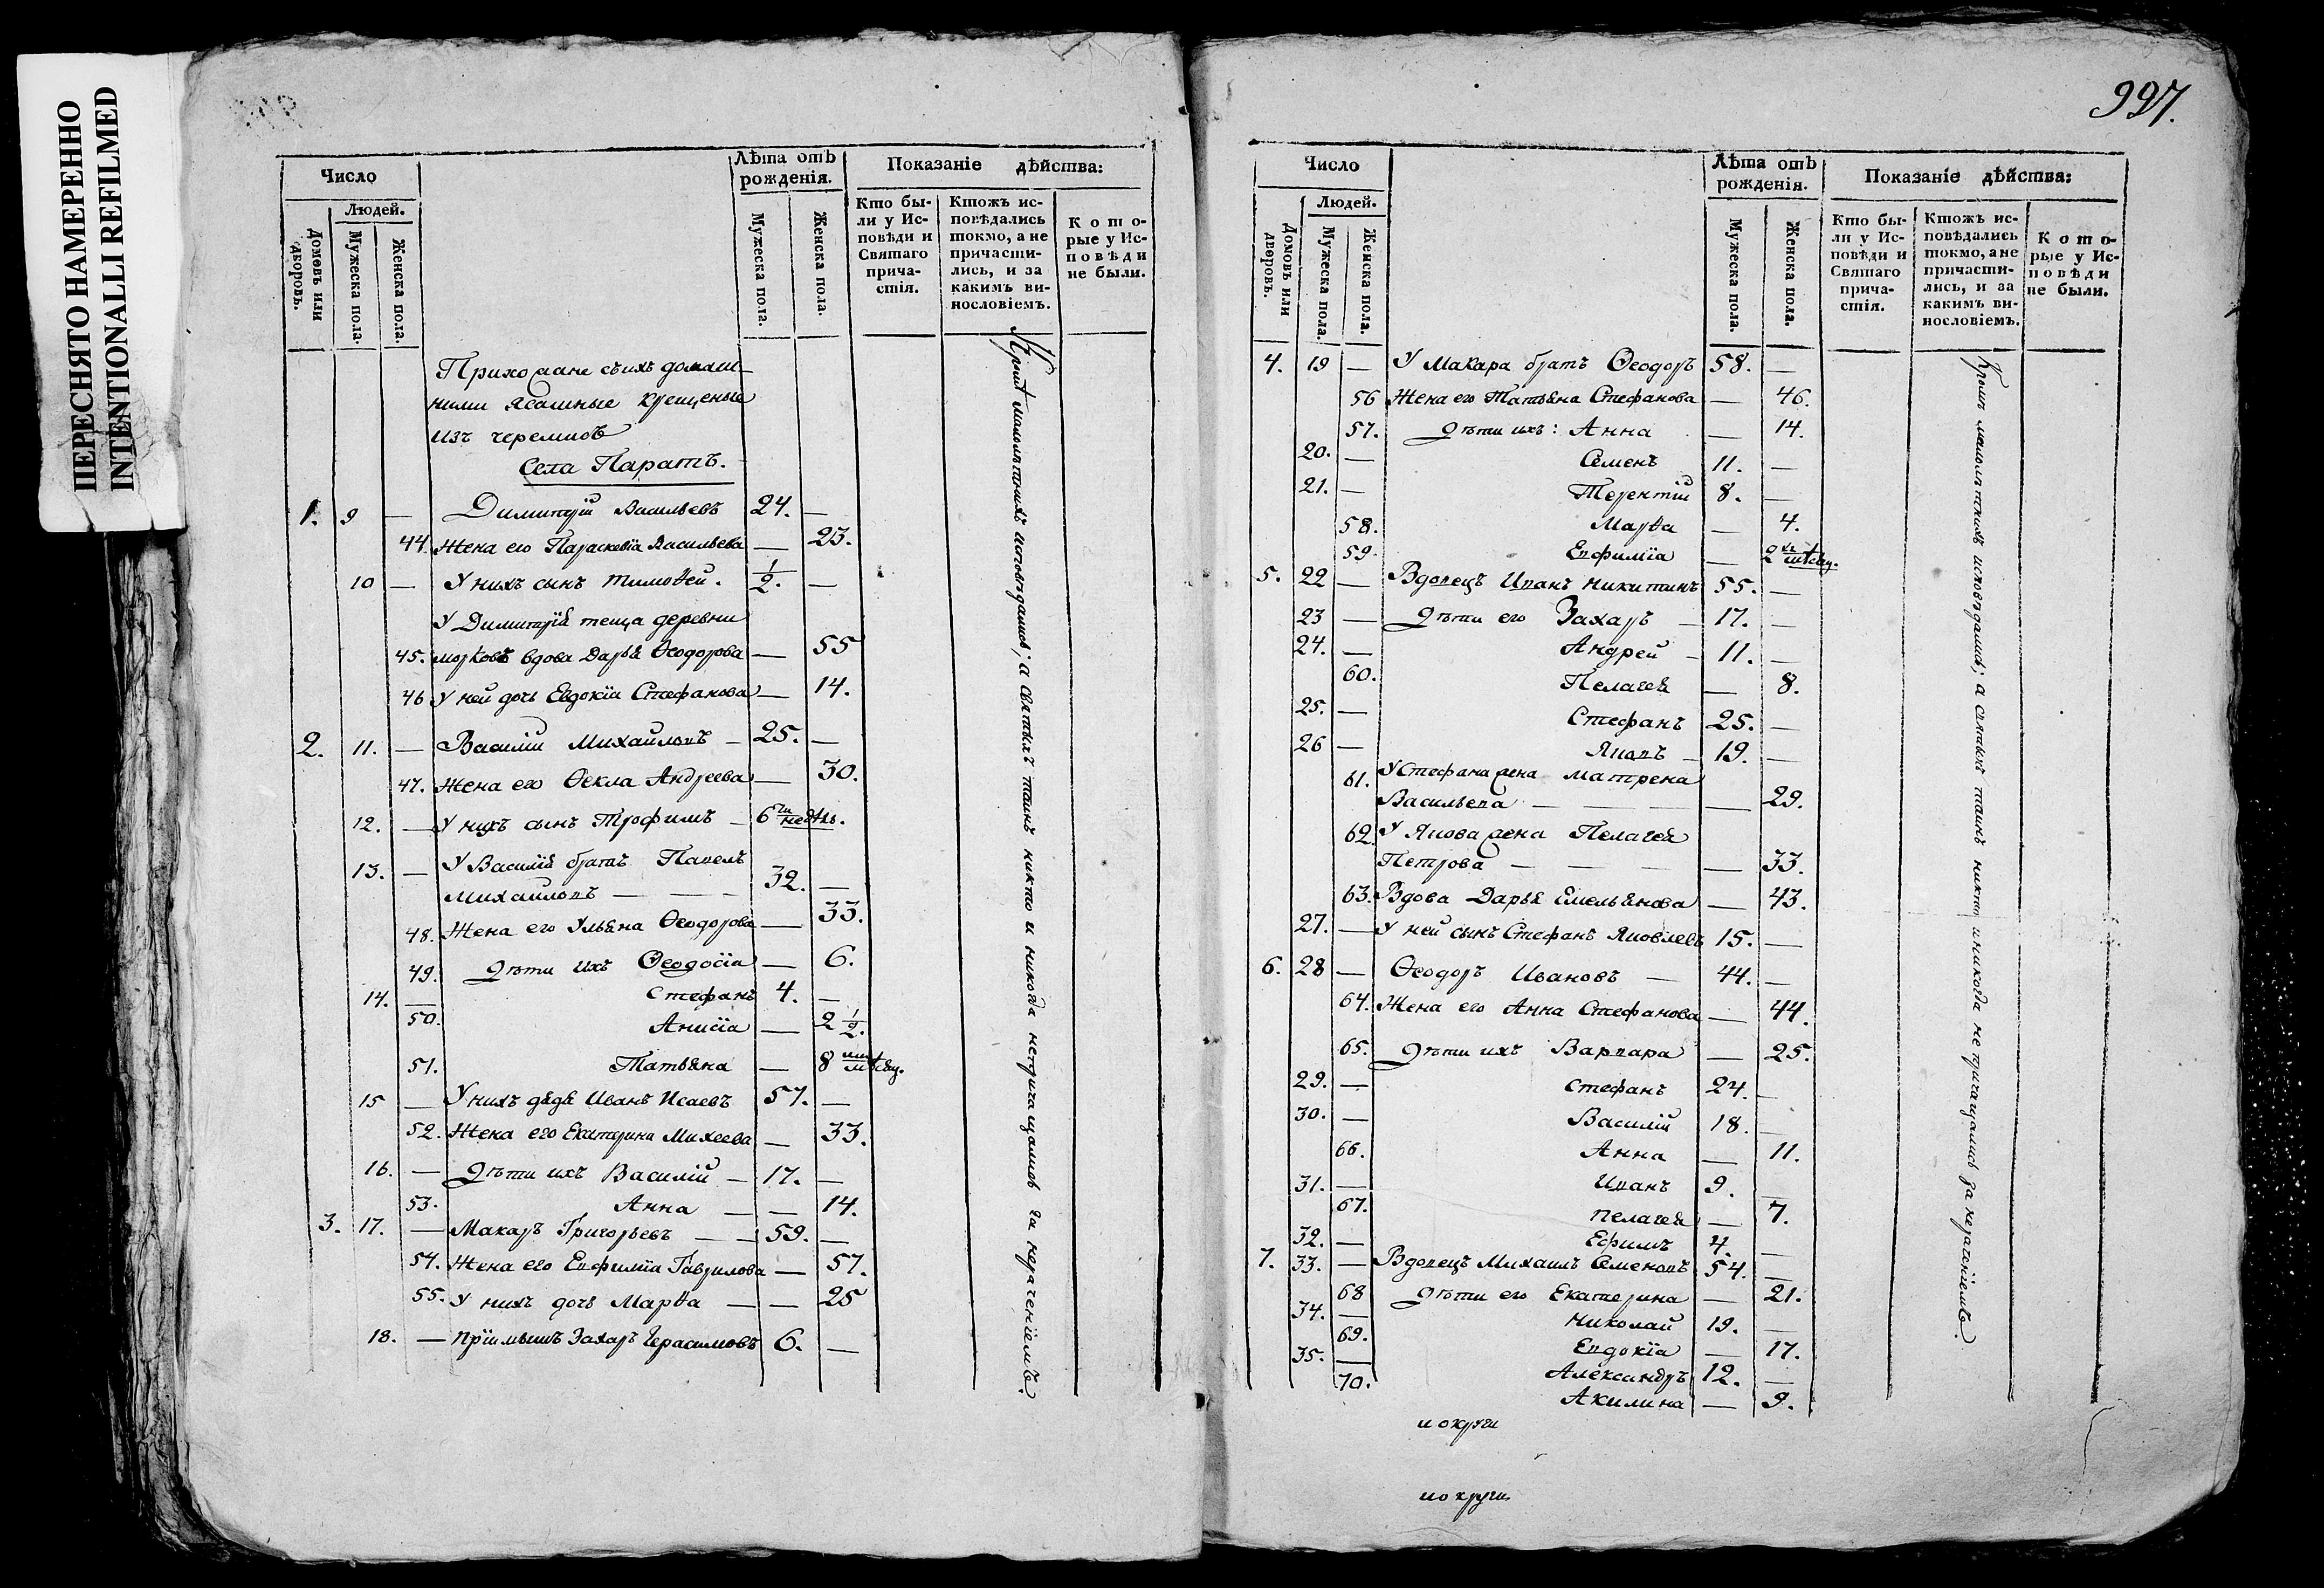 ПЕРЕСНЯТО НАМЕРЕННО
INTENTIONALLI REFILMED
Число
Людей.
Домовъ или дворовъ.
Мужеска пола.
Женска пола.
Лѣта отъ рожденія.
Мужеска пола.
Женска пола.
Показаніе дѣйства:
Кто бы-
ли у Ис-
повѣди и
Святаго
прича-
стія.
Ктожъ ис-
повѣдались
токмо, а не
причасти-
лись, и за
какимъ ви-
нословіемъ.
Кото-
рые у Ис-
повѣди
не были.
Прихожане съ ихъ домаш-
ними ясашные крещеные
изъ черемисъ
Села Паратъ.
1. 9 — Димитрій Васильевъ 24. —
44. Жена его Параскевіа Васильева — 23.
10 — У нихъ сынъ Тимоѳей. 1/2. —
У Димитрія теща деревни
45. морковъ вдова Дарья Ѳеодорова — 55
46 У ней дочь Евдокіа Стефанова — 14.
2. 11. — Василій Михайловъ — 25. —
47. Жена его Ѳекла Андреева — 30.
12. — У нихъ сынъ Трофимъ — 6ти недѣль.
13. — У Василія братъ Павелъ
Михаиловъ — — — 32. —
48. Жена его Ульяна Ѳеодорова — 33.
49. Дѣти ихъ Ѳеодосіа — 6.
14. — Стефанъ 4. —
50. Анисіа — 2 1/2.
51. Татьяна — 8ми мѣсяц.
15 — У нихъ дядя Иванъ Исаевъ 57. —
52. Жена его Екатерина Михеева — 33.
16. — Дѣти ихъ Василій — 17. —
53. Анна — — 14.
3. 17. — Макаръ Григорьевъ — — 59. —
54. Жена его Евфиміа Гаврилова — 57.
55. У нихъ дочь Марѳа — — 25
18. — Пріимышъ Захаръ Герасимовъ 6. —
Кромѣ малолѣтныхъ исповѣдались; а святыхъ таинъ никто и никогда непричащались за нераченіемъ.
997.
Число
Людей.
Домовъ или дворовъ.
Мужеска пола.
Женска пола.
Лѣта отъ рожденія.
Мужеска пола.
Женска пола.
Показаніе дѣйства:
Кто бы-
ли у Ис-
повѣди и
Святаго
прича-
стія.
Ктожъ ис-
повѣдались
токмо, а не
причасти-
лись, и за
какимъ ви-
нословіемъ.
Кото-
рые у Ис-
повѣди
не были.
4. 19 — У Макара братъ Ѳеодоръ 58. —
56 Жена его Татьяна Стефанова — 46.
57. Дѣти ихъ: Анна — 14.
20. — Семенъ 11. —
21. — Терентій 8. —
58. Марѳа — 4.
59. Евфиміа — 2хъ мѣсяц.
5. 22 — Вдовецъ Иванъ Никитинъ 55. —
23 — Дѣти его Захаръ — 17. —
24. — Андрей — 11. —
60. Пелагея — 8.
25. — Стефанъ 25. —
26 — Яковъ — 19. —
61. У Стефана жена Матрена
Васильева — — — — 29.
62. У Якова жена Пелагея
Петрова — — — — 33.
63. Вдова Дарья Емельянова — 43.
27. — У ней сынъ Стефанъ Яковлевъ 15. —
6. 28 — Ѳеодоръ Ивановъ — 44. —
64. Жена его Анна Стефанова — 44.
65. Дѣти ихъ Варвара — 25.
29. — Стефанъ 24. —
30. — Василій 18. —
66. Анна — 11.
31. — Иванъ 9. —
67. Пелагея — 7.
32. — Ефимъ 4. —
7. 33. — Вдовецъ Михаилъ Семеновъ 54. —
68 Дѣти его Екатерина — 21.
34. — Николай 19. —
69. Евдокіа — 17.
35. — Александръ 12. —
70. Акилина — 9.
Кромѣ малолѣтныхъ исповѣдались; а святыхъ таинъ никто и никогда не причащались за нераченіемъ.